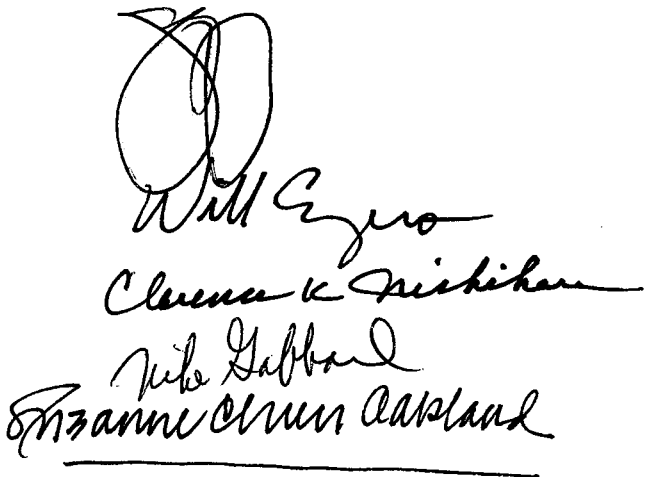 Will Espero
Clarence K Nishihara
Mike Gabbard
Suzanne Chun Oakland